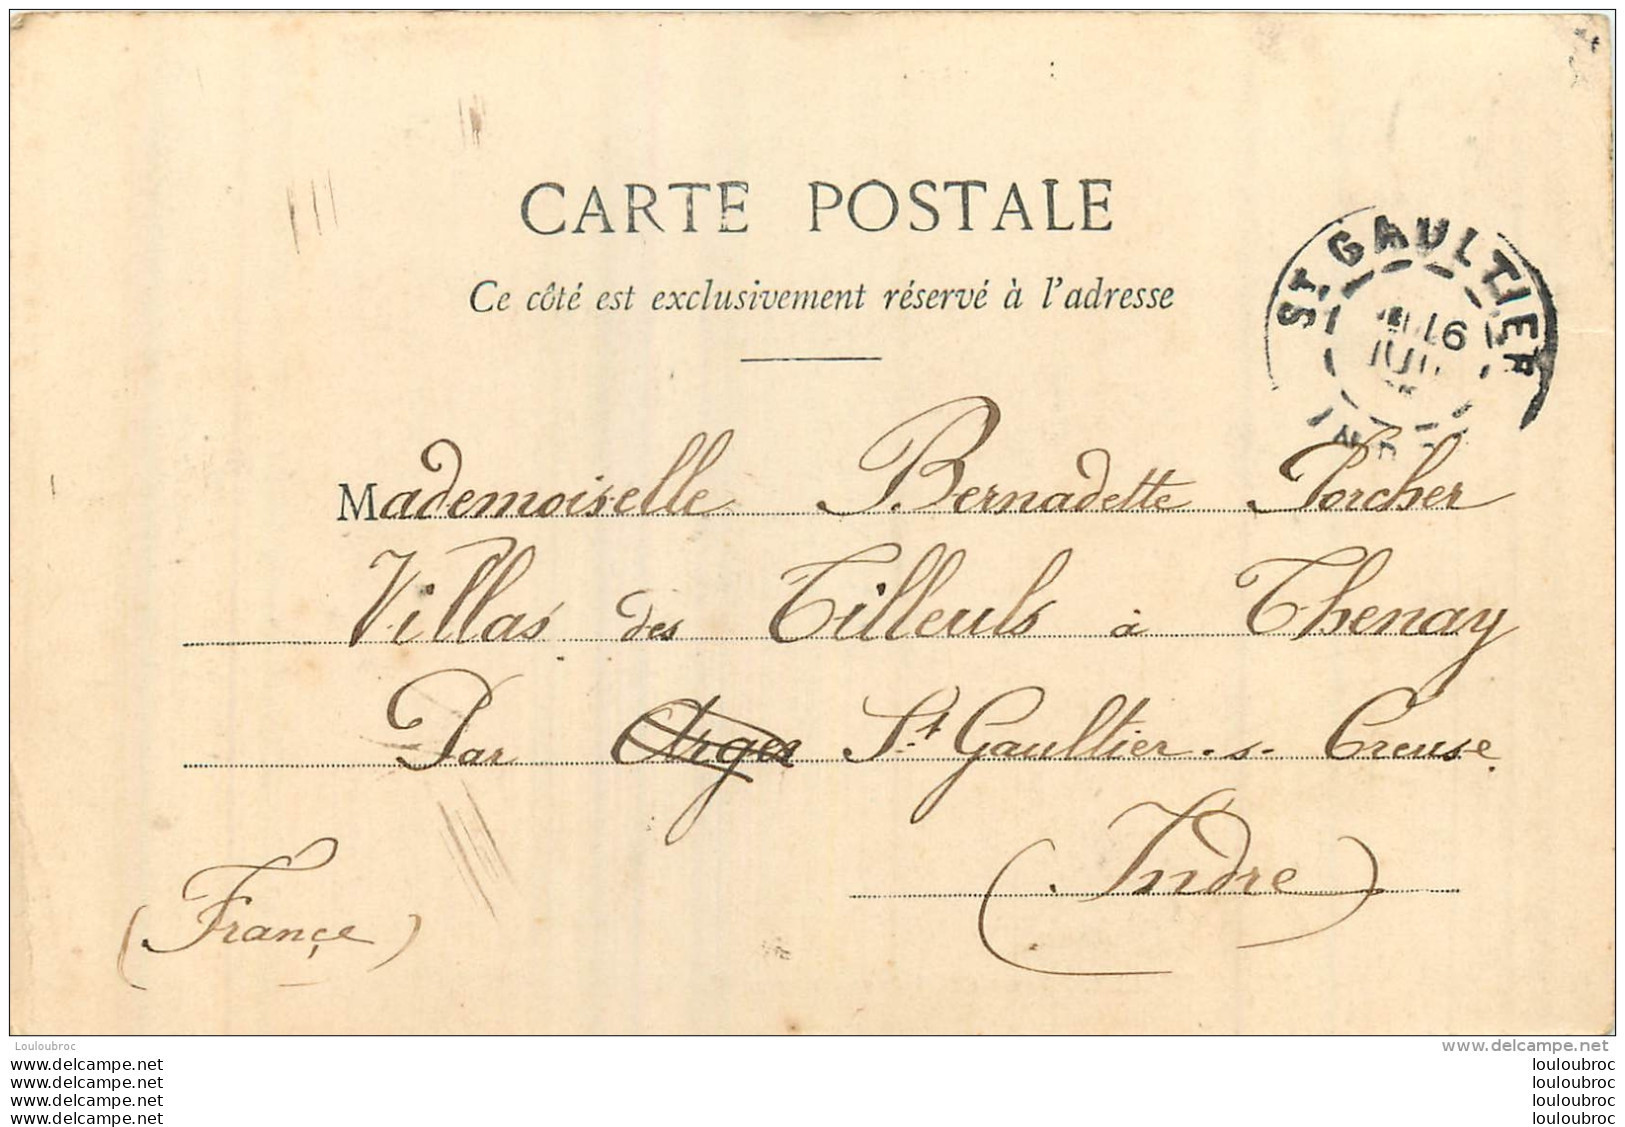 CARTE POSTALE
Ce côté est exclusivement réservé à l'adresse
ST GAULTIER
Mademoiselle Bernadette Porcher
Villas des Tilleuls à Thenay
Par St Gaultier-s-Creuse.
(Indre)
(France)
Louloubroc
www.delcampe.net
www.delcampe.net
www.delcampe.net
www.delcampe.net
www.delcampe.net
louloubroc
louloubroc
louloubroc
louloubroc